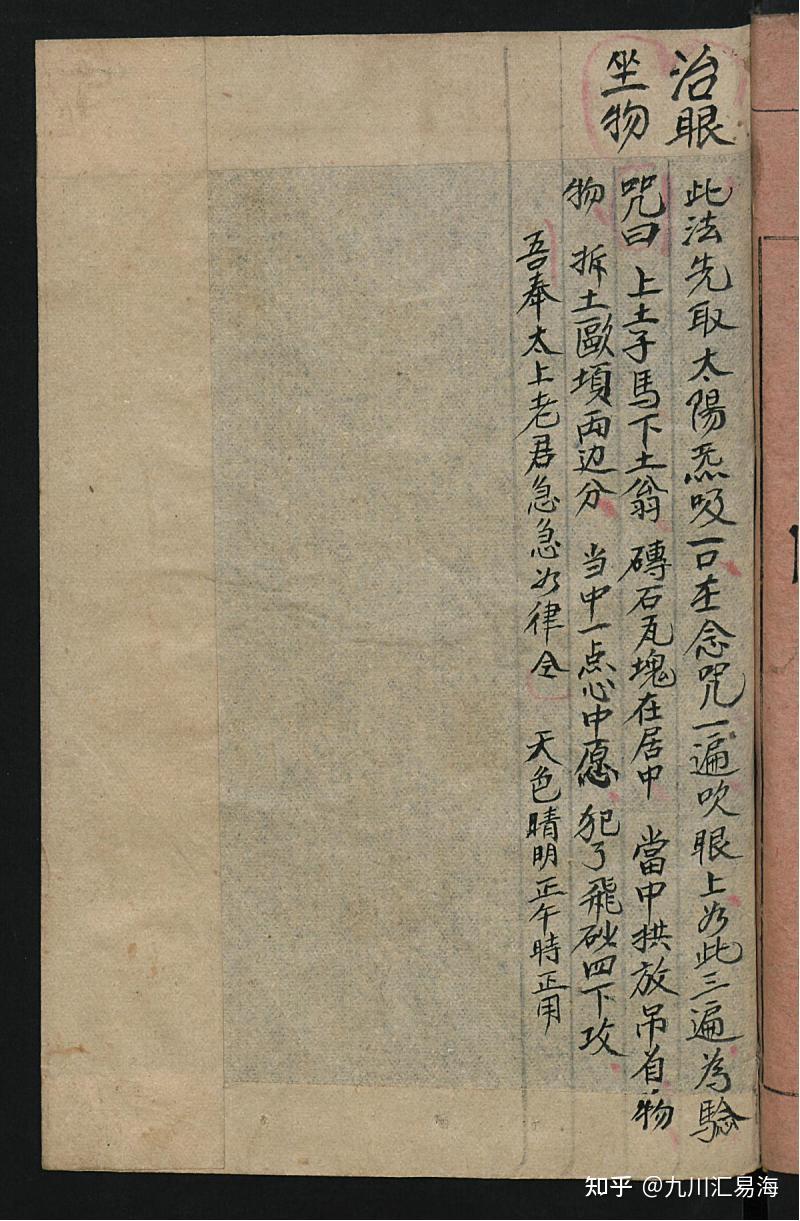 治眼
坐物
此法先取太陽炁吸一口在念咒一遍吹眼上如此三遍為驗
咒曰 上土子馬下土翁 磚石瓦塊在居中 當中拱放吊有物
物 拆土歐埧両边分 当中一点心中愿 犯了飛砂四下攻
吾奉太上老君急急如律令 天色晴明正午時正用
知乎 @九川汇易海